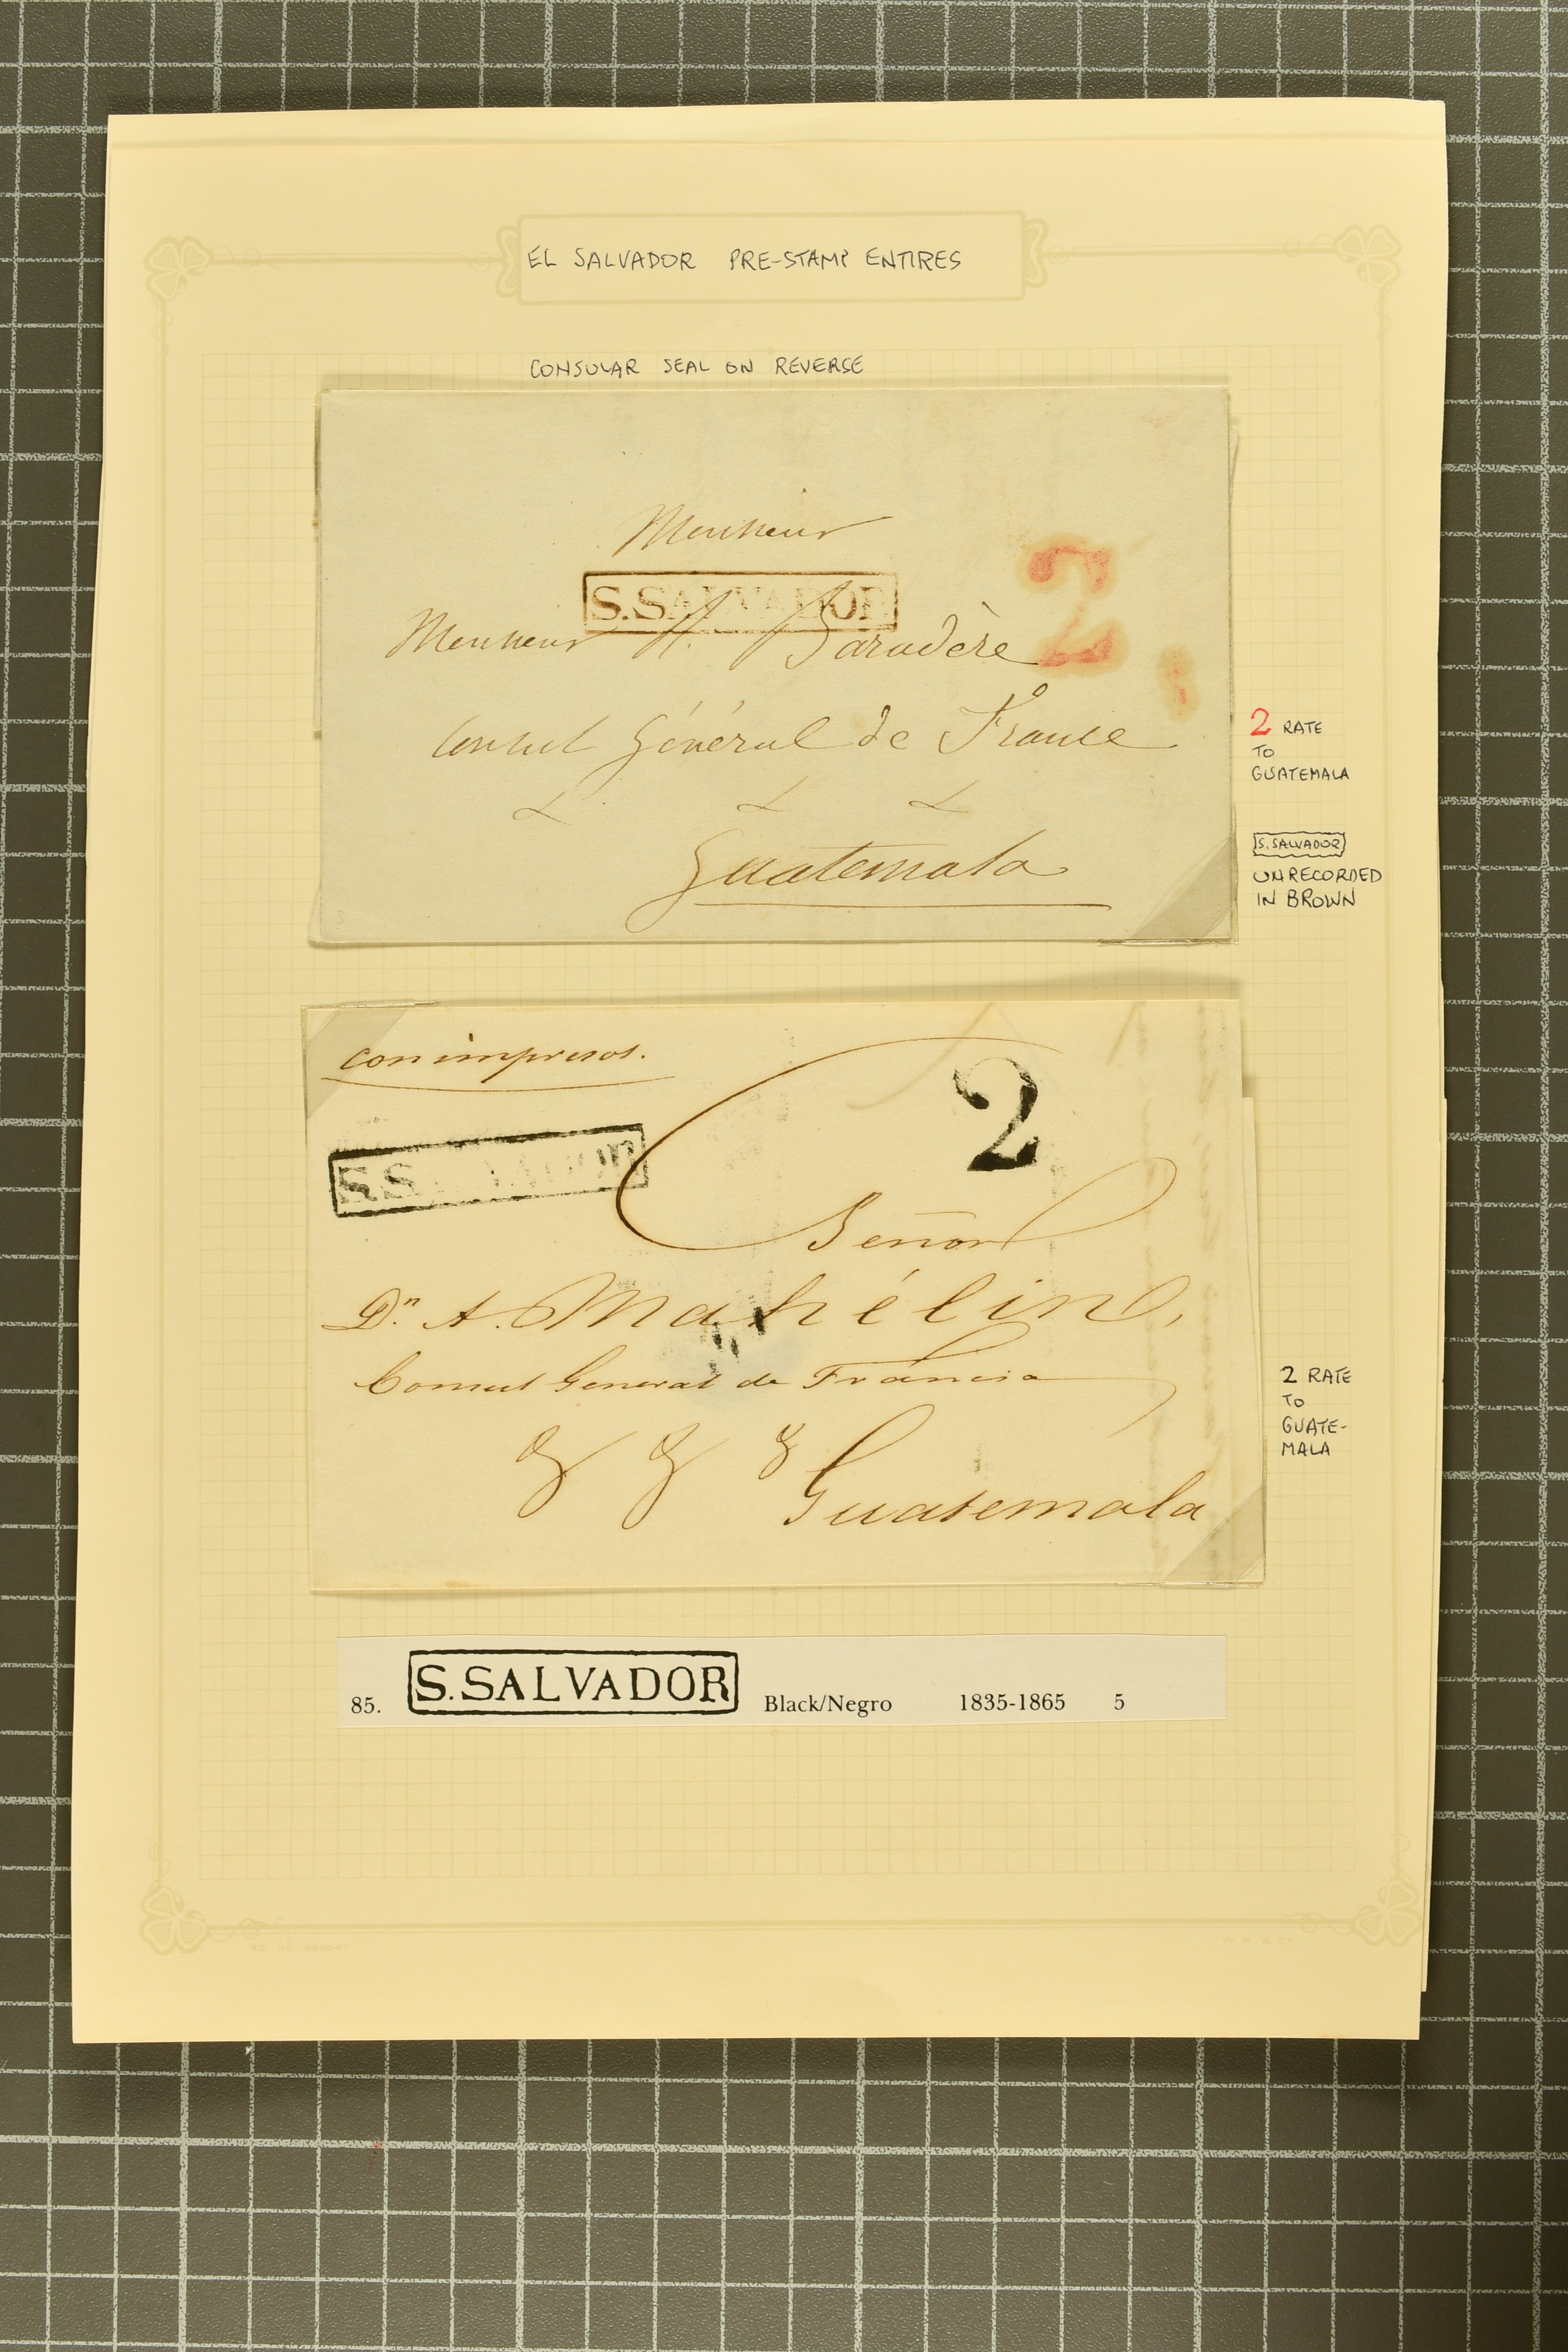 EL SALVADOR PRE-STAMP ENTIRES
CONSULAR SEAL ON REVERSE
Monsieur
S.SALVADOR
2
Monsieur H. Baradère
Consul Général de France
Guatemala
2 RATE
TO
GUATEMALA
S.SALVADOR
UNRECORDED
IN BROWN
con impresos.
2
S.SALVADOR
Señor
Dn. A. Mahélin,
Consul General de Francia
Guatemala
2 RATE
TO
GUATE-
MALA
85. S.SALVADOR Black/Negro 1835-1865 5